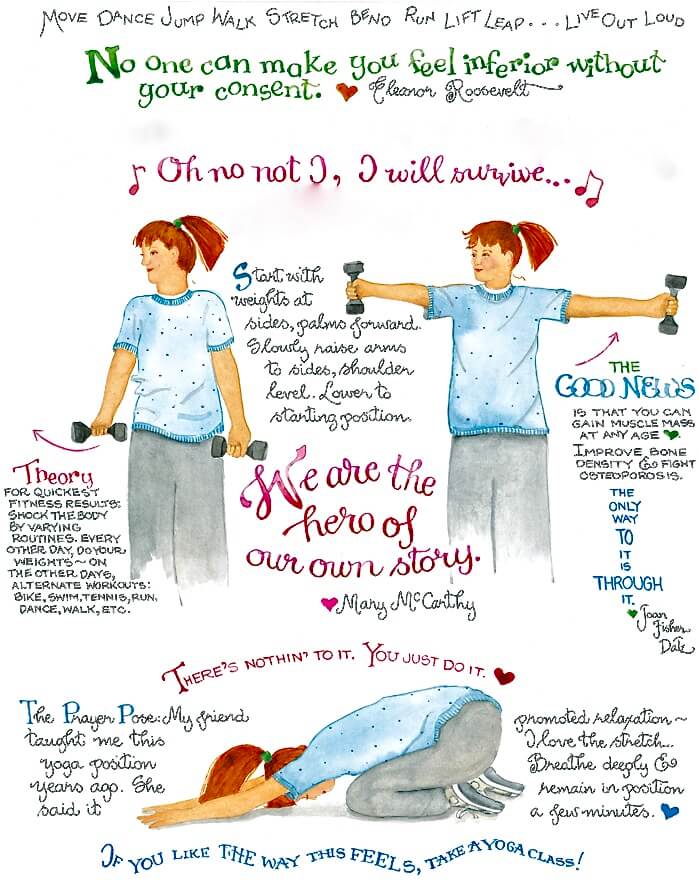 MOVE DANCE JUMP WALK STRETCH BEND RUN LIFT LEAP... LIVE OUT LOUD
No one can make you feel inferior without
your consent. Eleanor Roosevelt
Oh no not I, I will survive...
Start with
weights at
sides, palms forward.
Slowly raise arms
to sides, shoulder
level. Lower to
starting position.
THE
GOOD NEWS
IS THAT YOU CAN
GAIN MUSCLE MASS
AT ANY AGE
IMPROVE BONE
DENSITY & FIGHT
OSTEOPOROSIS.
THE
ONLY
WAY
TO
IT
IS
THROUGH
IT.
Joan
Fisher
Datz
Theory
FOR QUICKEST
FITNESS RESULTS:
SHOCK THE BODY
BY VARYING
ROUTINES. EVERY
OTHER DAY, DO YOUR
WEIGHTS~ON
THE OTHER DAYS,
ALTERNATE WORKOUTS:
BIKE, SWIM, TENNIS, RUN,
DANCE, WALK, ETC.
We are the
hero of
our own story.
Mary McCarthy
THERE'S NOTHIN' TO IT. YOU JUST DO IT.
The Prayer Pose: My friend
taught me this
yoga position
years ago. She
said it
promoted relaxation~
I love the stretch...
Breathe deeply &
remain in position
a few minutes.
IF YOU LIKE THE WAY THIS FEELS, TAKE A YOGA CLASS!